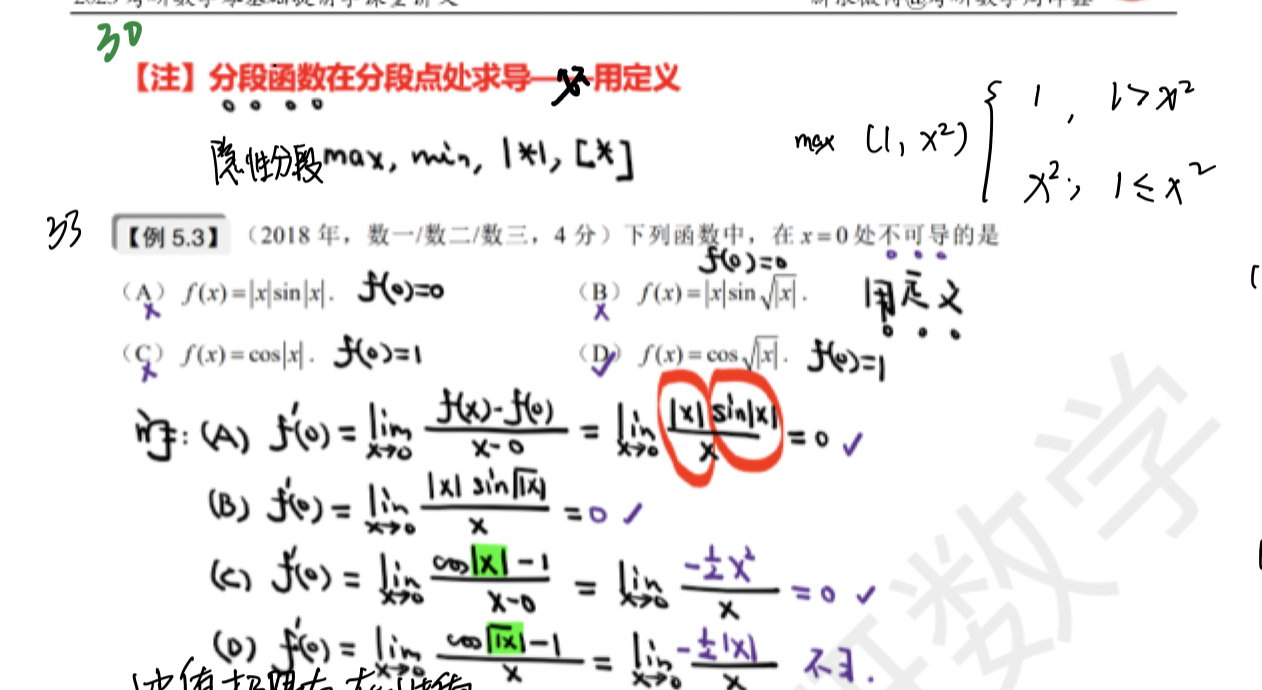 30
【注】分段函数在分段点处求导——用定义
隐性分段max, min, |*|, [*]
max (1, x²) { 1, 1>x²
x², 1≤x²
33 【例 5.3】(2018 年,数一/数二/数三,4 分)下列函数中,在 x=0 处不可导的是
(A) f(x)=|x|sin|x|. f(0)=0
(B) f(x)=|x|sin√|x|. f(0)=0 用定义
(C) f(x)=cos|x|. f(0)=1
(D) f(x)=cos√|x|. f(0)=1
(A) f'(0)=lim x→0 (f(x)-f(0))/(x-0) = lim x→0 |x|sin|x|/x =0 ✓
(B) f'(0)=lim x→0 |x| sin√|x|/x =0 ✓
(C) f'(0)=lim x→0 (cos|x|-1)/(x-0) = lim x→0 (-½x²)/x =0 ✓
(D) f'(0)=lim x→0 (cos√|x|-1)/x = lim x→0 (-½|x|)/x 不∃.
研数学